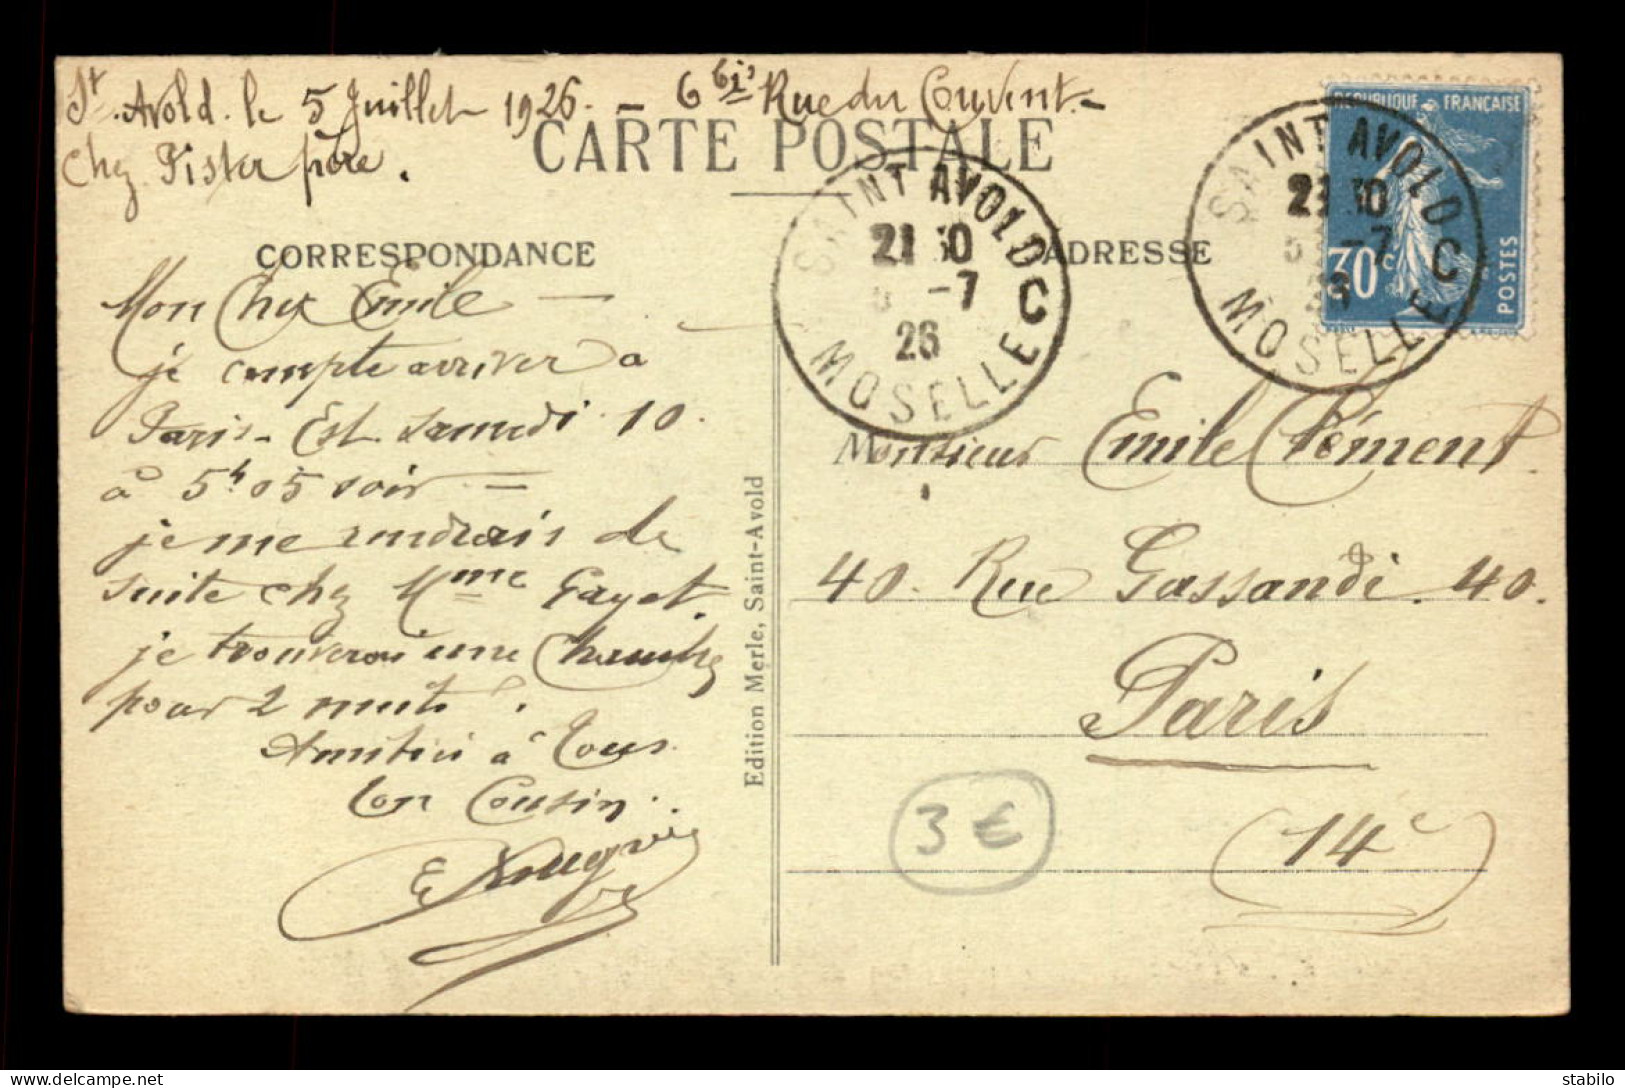 St. Avold. le 5 Juillet 1926. - 6 bis Rue du Couvent. -
chez Pister père.
CARTE POSTALE
CORRESPONDANCE
ADRESSE
Mon Cher Emile —
je compte arriver à
Paris-Est. samedi 10.
à 5h 05 soir =
je me rendrais de
suite chez Mme Gayet.
je trouverai une Chambre
pour 2 nuits.
Amitiés à tous.
Ton Cousin.
E
Edition Merle, Saint-Avold
SAINT AVOLD C
21 30
5 -7
26
MOSELLE
REPUBLIQUE FRANÇAISE
30c
POSTES
SAINT AVOLD C
21 30
5 -7
26
MOSELLE
Monsieur Emile Clément.
40. Rue Gassendi. 40.
Paris
(14e)
3 €
stabilo